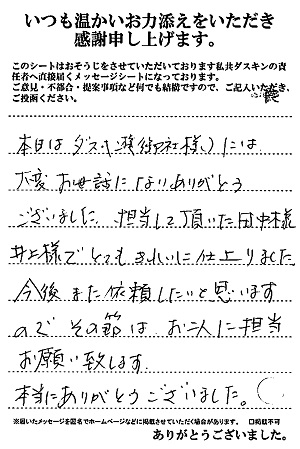 いつも温かいお力添えをいただき
感謝申し上げます。
このシートはおそうじをさせていただいております私共ダスキンの責
任者へ直接届くメッセージシートになっております。
ご意見・不都合・提案事項など何でも結構ですので、ご記入いただき、
ご投函ください。
本日はダスキン様(御社様)には
大変お世話になりありがとう
ございました。担当して頂いた田中様
井上様でとてもきれいに仕上りました
今後また依頼したいと思います
のでその節は、お二人に担当
お願い致します。
本当にありがとうございました。
※届いたメッセージを匿名でホームページなどに掲載させていただく場合があります。 □掲載不可
ありがとうございました。